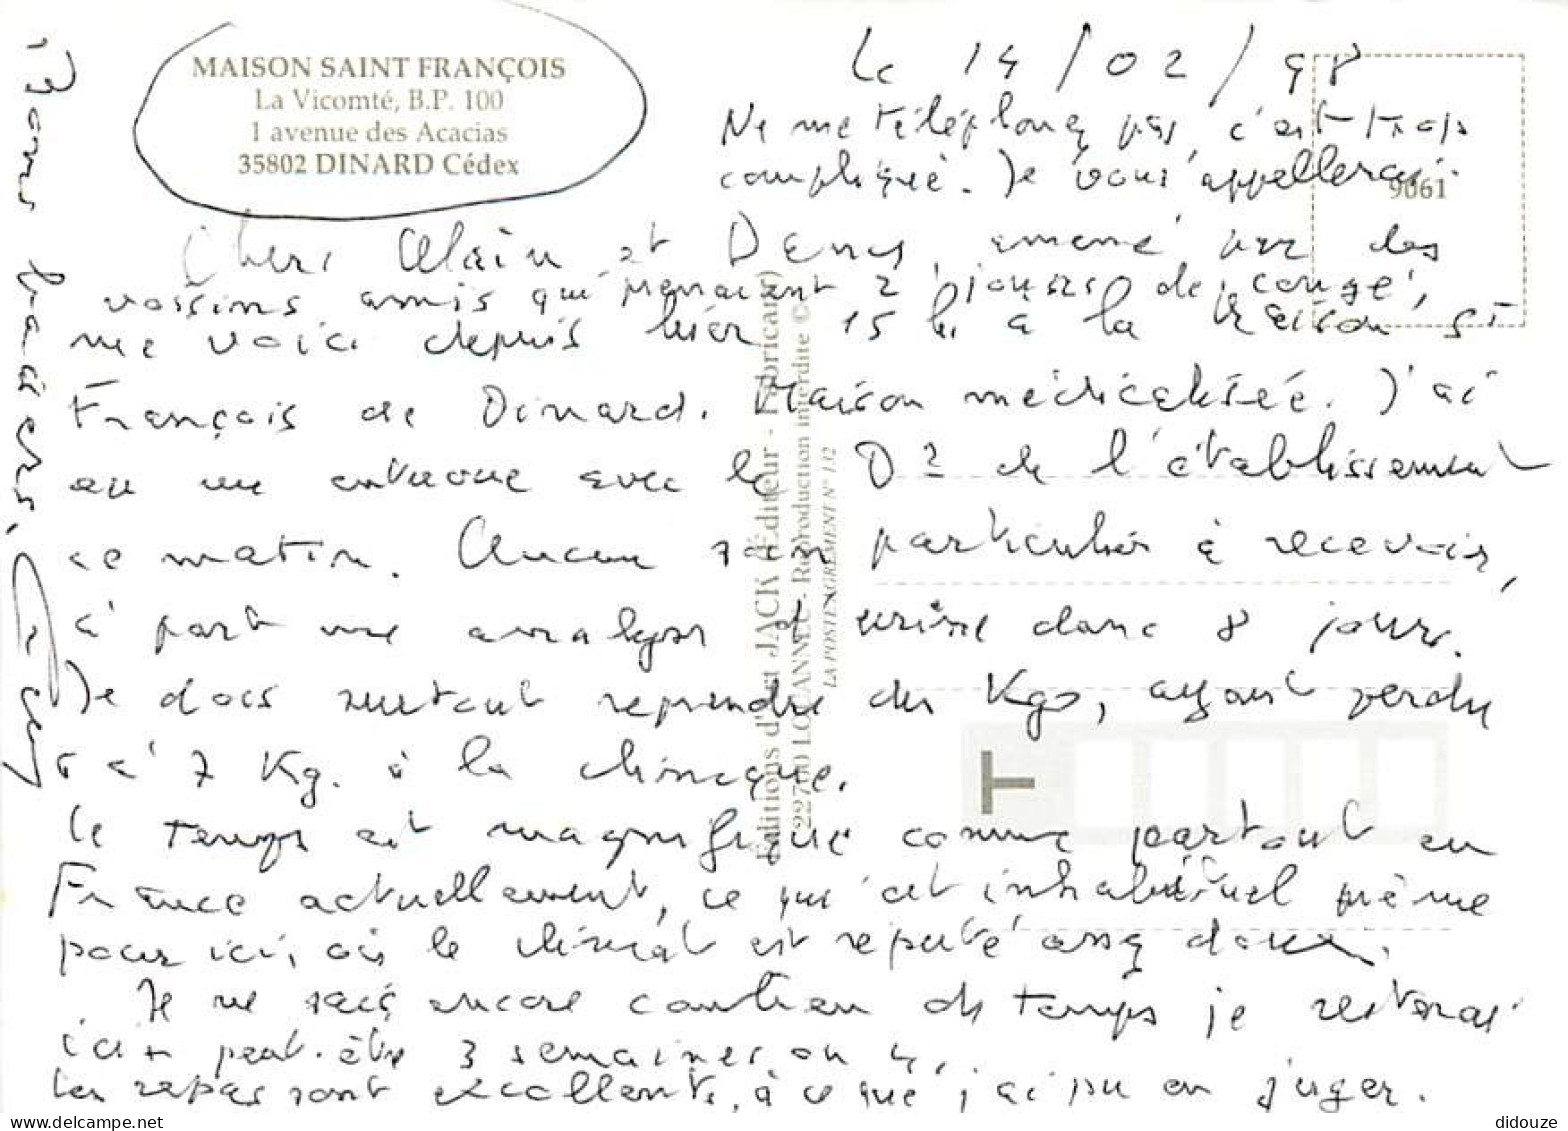 MAISON SAINT FRANÇOIS
La Vicomté, B.P. 100
1 avenue des Acacias
35802 DINARD Cédex
Le 14/02/98
Ne me téléphonez pas, c'est trop
compliqué. Je vous appellerai.
9061
Chers Alain et Denis, amené par des
voisins amis qui prenaient 2 jours de congé,
me voici depuis hier 15 h. à la Maison St
François de Dinard. Maison médicalisée. J'ai
eu une entrevue avec le Dr de l'établissement
ce matin. Aucun soin particulier à recevoir,
à part une analyse d'urine dans 8 jours.
Je dois surtout reprendre des Kgs, ayant perdu
6 à 7 Kg. à la clinique.
Le temps est magnifique comme partout en
France actuellement, ce qui est inhabituel même
pour ici, où le climat est réputé assez doux.
Je ne sais encore combien de temps je resterai
ici : peut-être 3 semaines ou 4.
Les repas sont excellents, à ce que j'ai pu en juger.
Bons baisers,
Éditions d'art JACK (Éditeur - Fabricant)
22700 LOUANNEC - Reproduction interdite ©
LA POSTE AGRÉMENT N° 132
T
didouze
www.delcampe.net